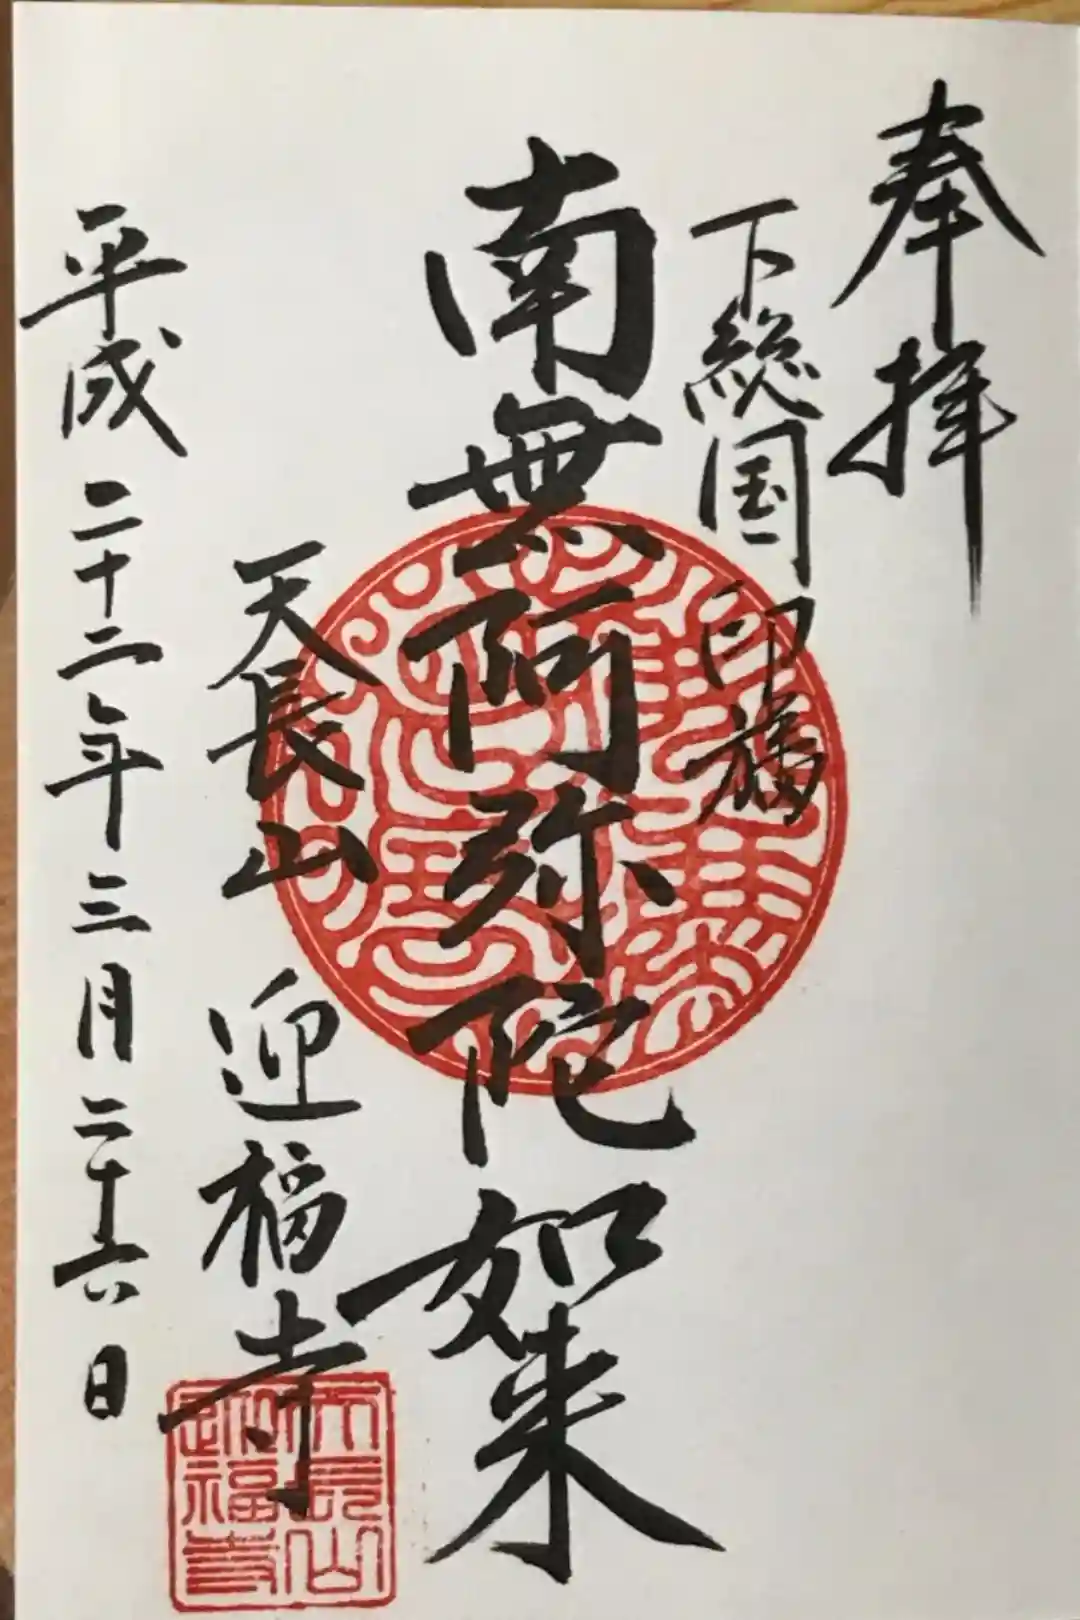 奉拝
下総国 印旛
南無阿弥陀如来
天長山 迎福寺
平成二十二年三月二十六日
天長山
迎福寺